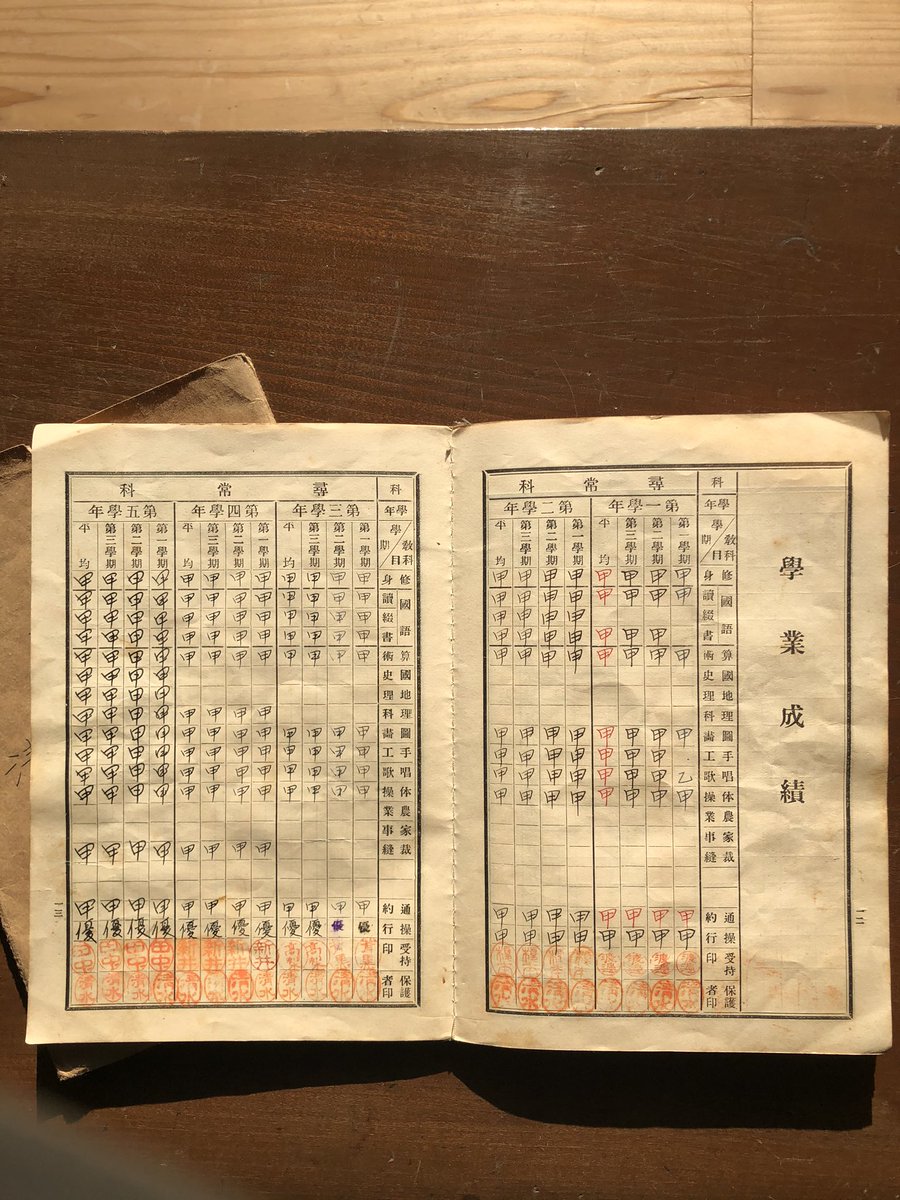 學業成績
一二
科
學年
學期
教科目
修身
國語
讀
綴
書
算術
國史
地理
理科
圖畫
手工
唱歌
体操
農業
家事
裁縫
通約
操行
受持印
保護者印
尋常科
第一學年
第一學期 甲 甲 甲 甲 乙 甲 甲 甲
第二學期 甲 甲 甲 甲 甲 甲 甲 甲 甲 甲
第三學期 甲 甲 甲 甲 甲 甲 甲 甲 甲 甲
平均 甲 甲 甲 甲 甲 甲 甲 甲 甲 甲
第二學年
第一學期 甲 甲 甲 甲 甲 甲 甲 甲 甲 甲 甲
第二學期 甲 甲 甲 甲 甲 甲 甲 甲 甲 甲 甲
第三學期 甲 甲 甲 甲 甲 甲 甲 甲 甲 甲 甲
平均 甲 甲 甲 甲 甲 甲 甲 甲 甲 甲 甲
科
學年
學期
教科目
修身
國語
讀
綴
書
算術
國史
地理
理科
圖畫
手工
唱歌
体操
農業
家事
裁縫
通約
操行
受持印
保護者印
尋常科
第三學年
第一學期 甲 甲 甲 甲 甲 甲 甲 甲 甲 甲 優
第二學期 甲 甲 甲 甲 甲 甲 甲 甲 甲 甲 優
第三學期 甲 甲 甲 甲 甲 甲 甲 甲 甲 甲 優
均 甲 甲 甲 甲 甲 甲 甲 甲 甲 甲 優
第四學年
第一學期 甲 甲 甲 甲 甲 甲 甲 甲 甲 甲 甲 甲 優 新井 清水
第二學期 甲 甲 甲 甲 甲 甲 甲 甲 甲 甲 甲 甲 優 新井 清水
第三學期 甲 甲 甲 甲 甲 甲 甲 甲 甲 甲 甲 甲 優 新井 清水
平均 甲 甲 甲 甲 甲 甲 甲 甲 甲 甲 甲 甲 優 新井 清水
第五學年
第一學期 甲 甲 甲 甲 甲 甲 甲 甲 甲 甲 甲 甲 甲 甲 優 田中 清水
第二學期 甲 甲 甲 甲 甲 甲 甲 甲 甲 甲 甲 甲 甲 甲 優 田中 清水
第三學期 甲 甲 甲 甲 甲 甲 甲 甲 甲 甲 甲 甲 甲 甲 優 田中 清水
平均 甲 甲 甲 甲 甲 甲 甲 甲 甲 甲 甲 甲 甲 甲 優 田中 清水
一三